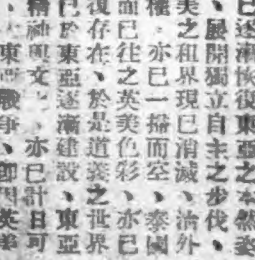 已遂漸恢復東亞之本然姿
、展開獨立自主之步伐、
美之租界現已消滅、治外
權、亦已一掃而空、泰國
而已往之英美色彩、亦已
復存在、於是道義之世界
已於東亞遂漸建設、東亞
精神與文、亦已計日可
、東亞戰爭、即因英